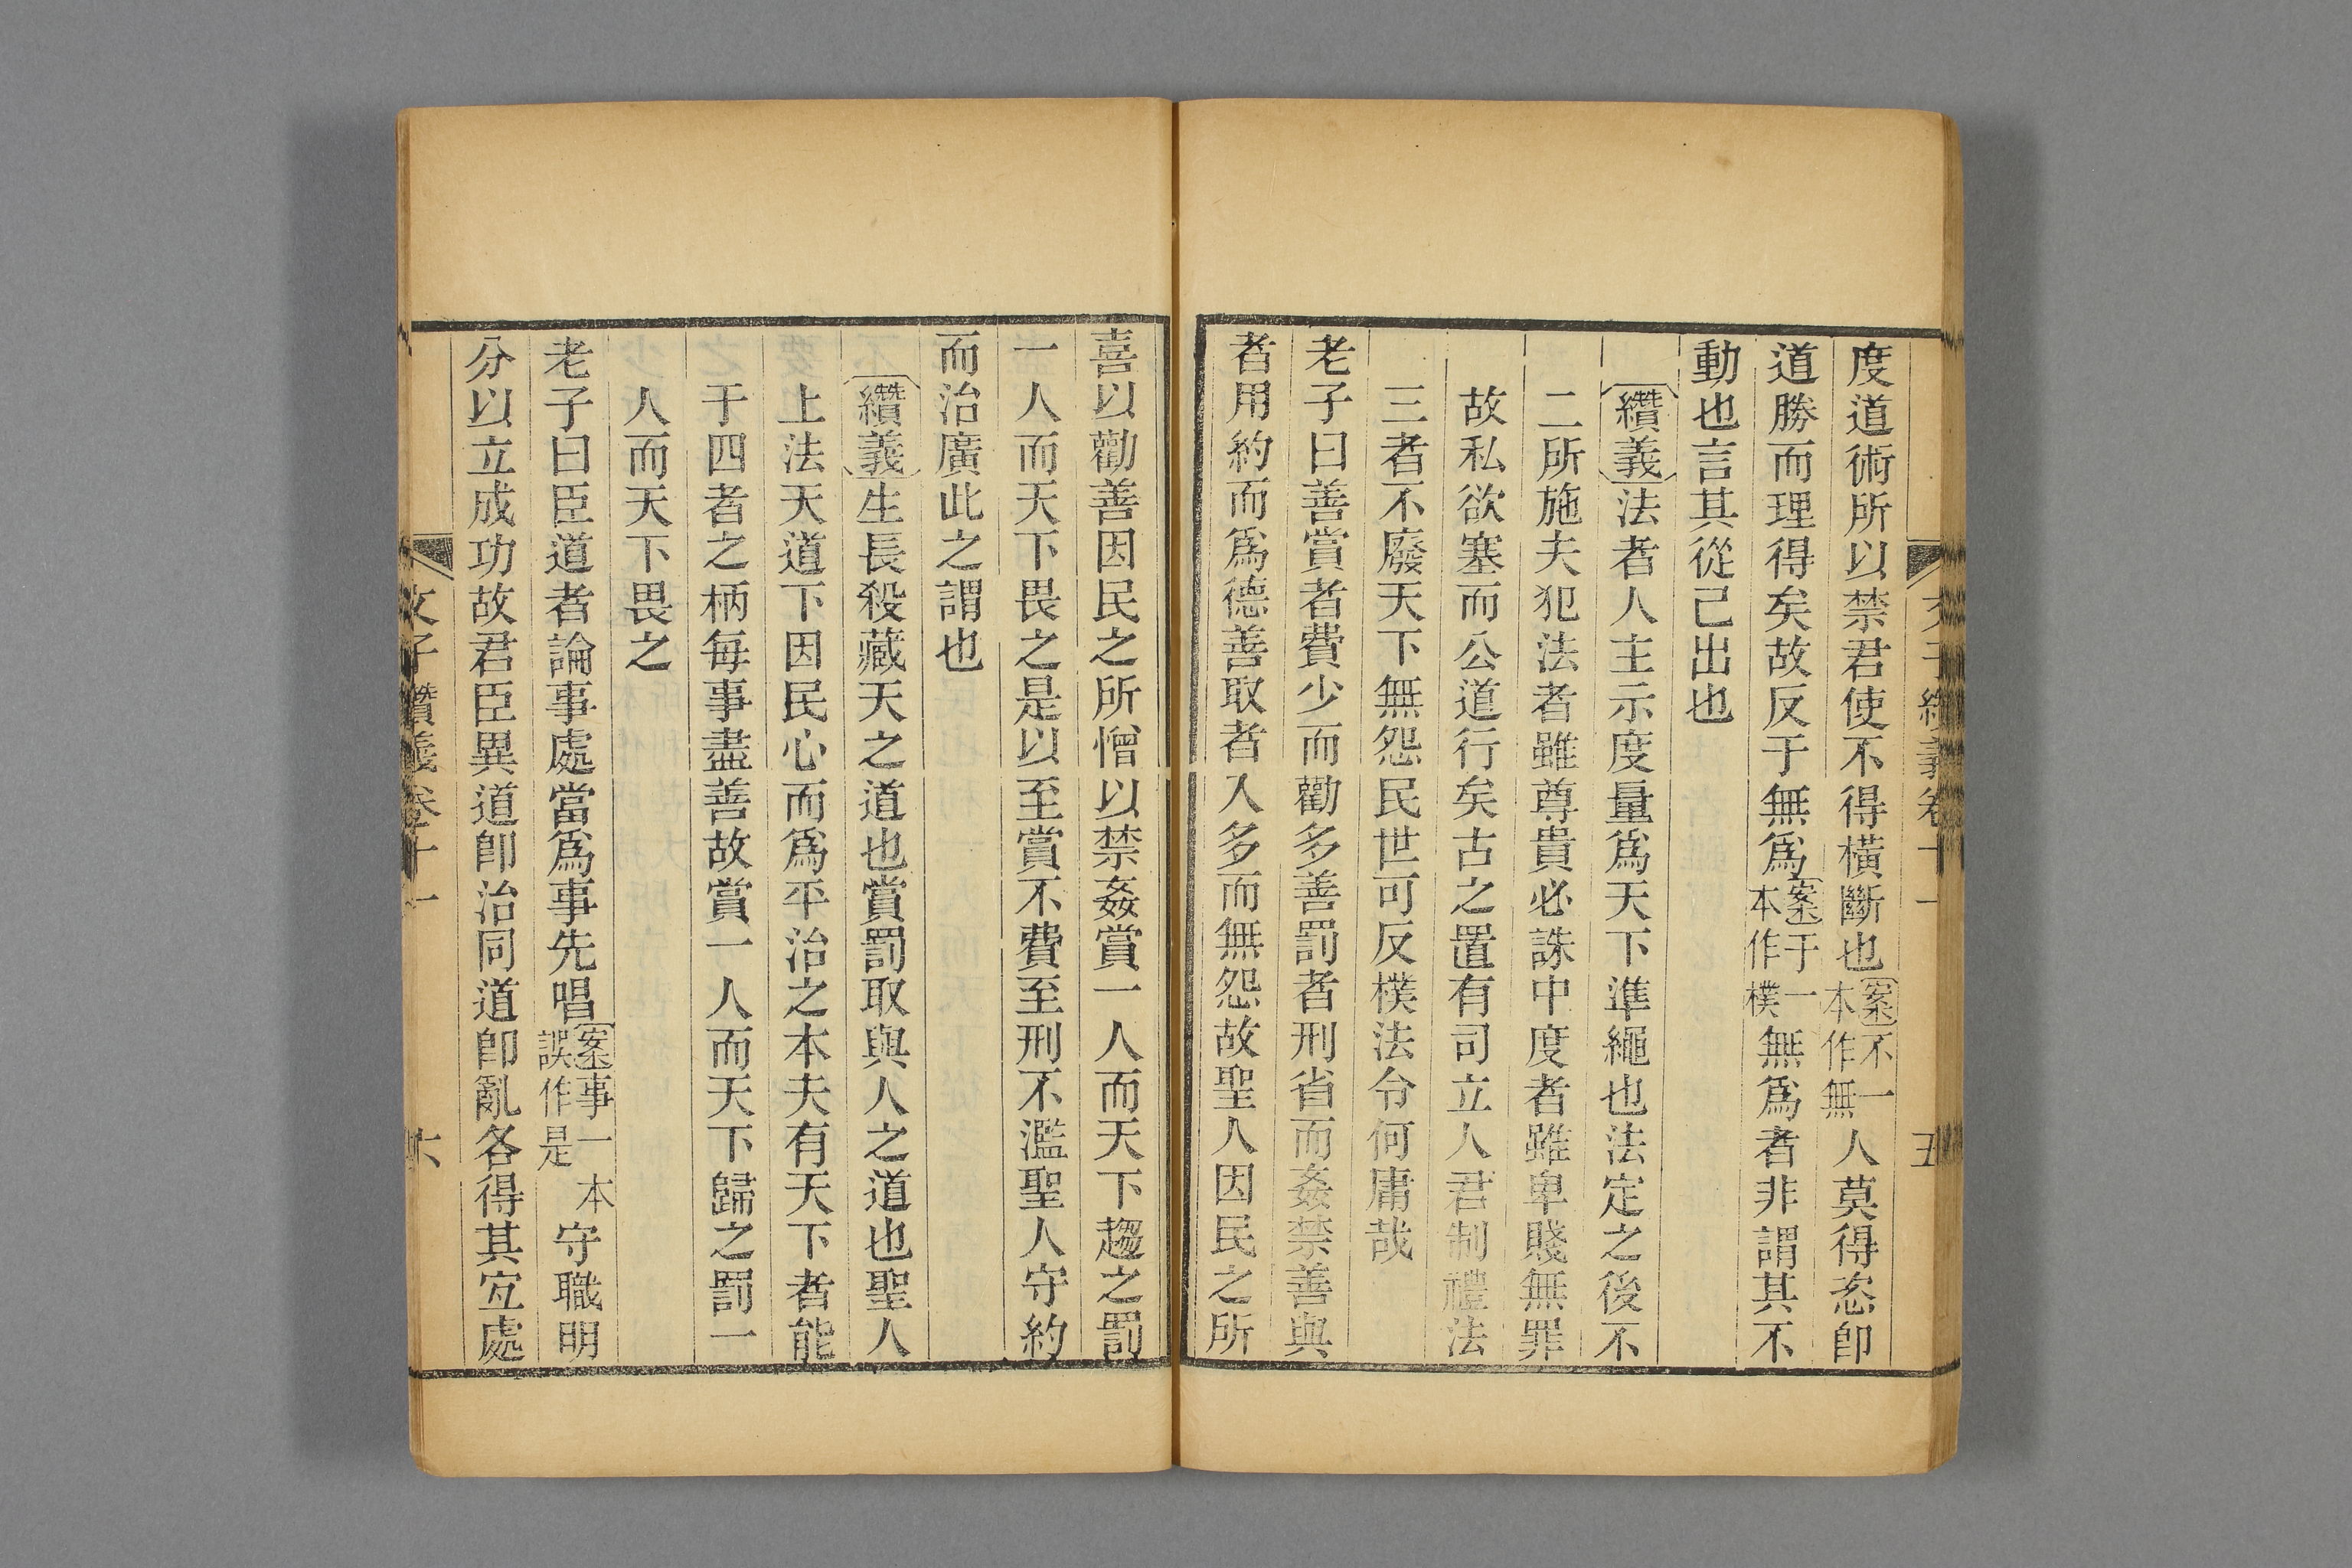 文子纘義卷十一 五
度道術所以禁君使不得橫斷也案不一本作無人莫得恣卽
道勝而理得矣故反于無爲案于一本作樸無爲者非謂其不
動也言其從己出也
纘義法者人主示度量爲天下準繩也法定之後不
二所施夫犯法者雖尊貴必誅中度者雖卑賤無罪
故私欲塞而公道行矣古之置有司立人君制禮法
三者不廢天下無怨民世可反樸法令何庸哉
老子曰善賞者費少而勸多善罰者刑省而姦禁善與
者用約而爲德善取者入多而無怨故聖人因民之所
喜以勸善因民之所憎以禁姦賞一人而天下趨之罰
一人而天下畏之是以至賞不費至刑不濫聖人守約
而治廣此之謂也
纘義生長殺藏天之道也賞罰取與人之道也聖人
上法天道下因民心而爲平治之本夫有天下者能
于四者之柄每事盡善故賞一人而天下歸之罰一
人而天下畏之
老子曰臣道者論事處當爲事先唱案事一本誤作是守職明
分以立成功故君臣異道卽治同道卽亂各得其宐處
文子纘義卷十一 六